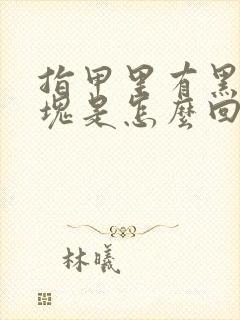 指甲里有黑
块是怎麼回
林曦